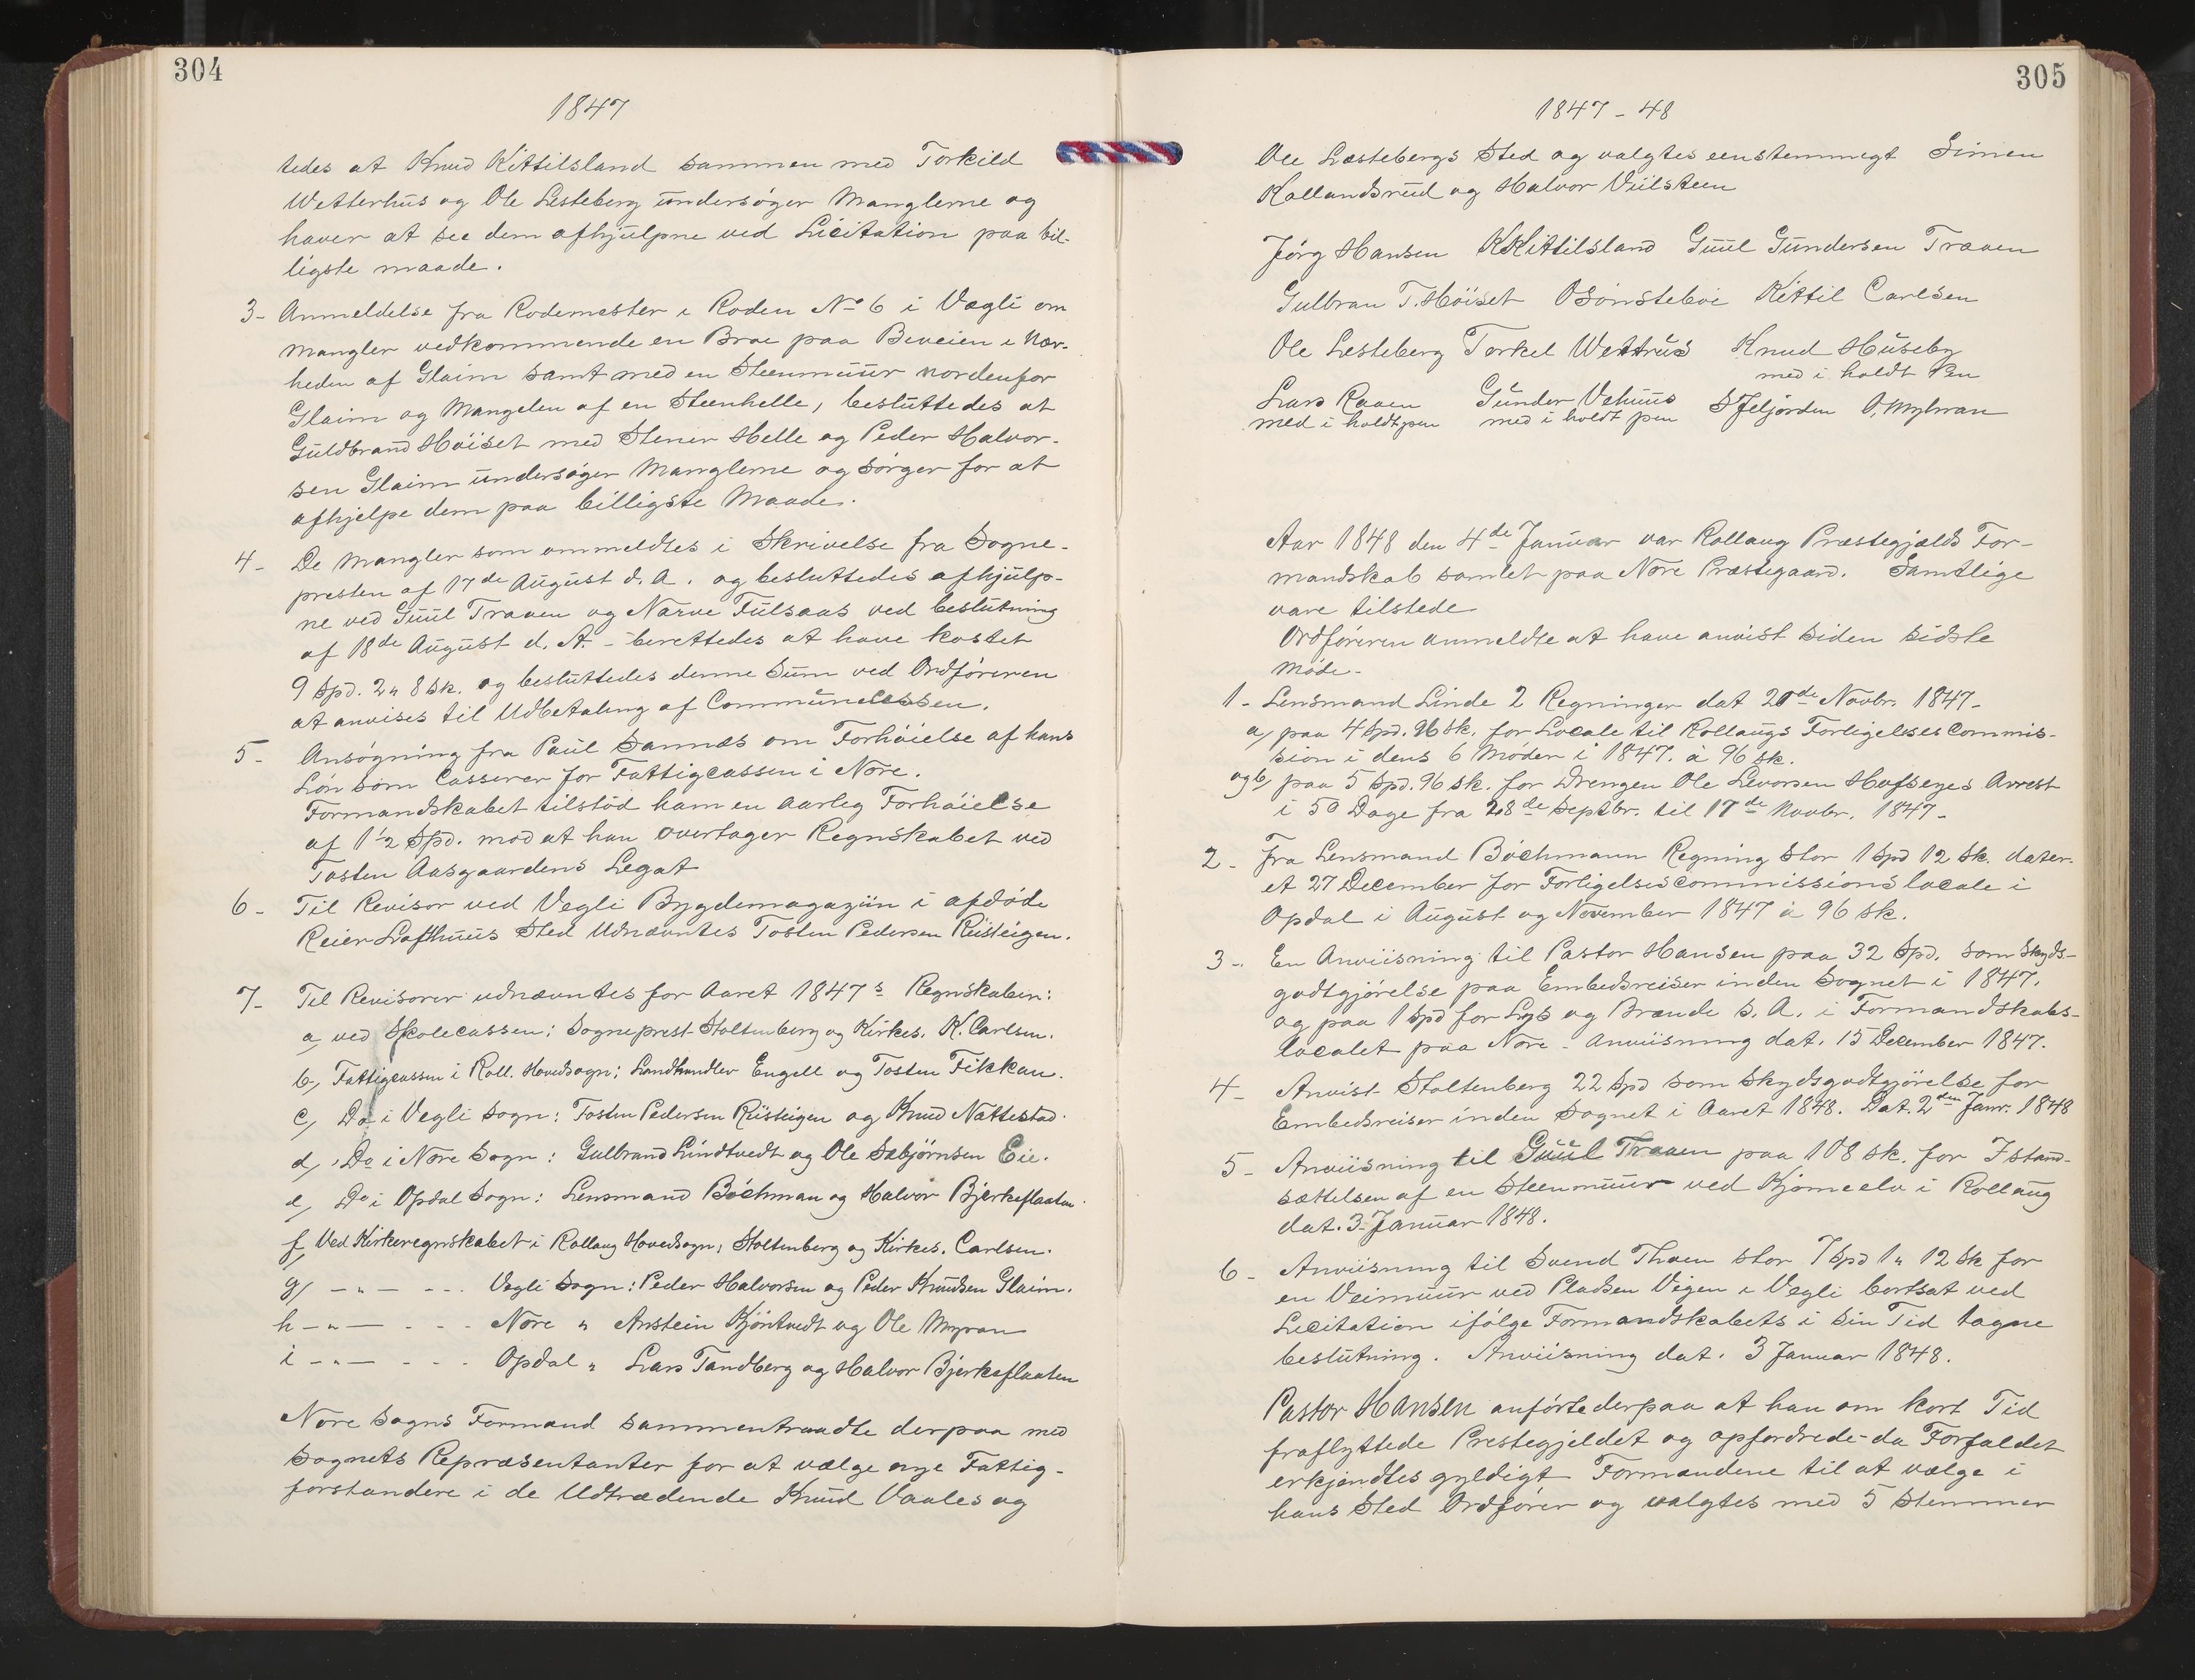 304
1847
tedes at Knud Kittilsland sammen med Torkild
Wetterhus og Ole Lesteberg undersøger Manglerne og
haver at see dem afhjulpne ved Licitation paa bil-
ligste maade.
3- Anmeldelse fra Rodemester i Roden No 6 i Vægli om
Mangler vedkommende en Broe paa Biveien i Nær-
heden af Glaim samt med en Steenmuur nordenfor
Glaim og Mangelen af en Steenhelle, besluttedes at
Guldbrand Høiset med Stener Helle og Peder Halvor-
sen Glaim undersøger Manglerne og sørger for at
afhjelpe dem paa billigste Maade.
4- De Mangler som ommeldtes i Skrivelse fra Sogne-
presten af 17de August d. A. og besluttedes afhjulp-
ne ved Guul Traaen og Narve Fulsaas ved beslutning
af 18de August d. A. - berettedes at have kostet
9 Spd. 2 " 8 sk. og besluttedes denne Sum ved Ordføreren
at anvises til Udbetaling af Communecassen.
5- Ansøgning fra Paul Sannæs om Forhøielse af hans
Løn som Casserer for Fattigcassen i Nore.
Formandskabet tilstod ham en aarlig Forhøielse
af 1 1/2 Spd. mod at han overtager Regnskabet ved
Tosten Aasgaardens Legat
6- Til Revisor ved Vegli Bygdemagaziin i afdøde
Reier Lofthuus Sted Udnævntes Tosten Pedersen Riisteigen.
7- Til Revisorer udnævntes for Aaret 1847s Regnskaber:
a, ved Skolecassen: Sogneprest Stoltenberg og Kirkes. K. Carlsen.
b, Fattigcassen i Roll. Hovedsogn: Landhandler Engell og Tosten Fikkan.
c, Do i Vegli Sogn: Tosten Pedersen Riisteigen og Knud Nattestad.
d, Do i Nore Sogn: Gulbrand Lindtvedt og Ole Sebjørnsen Eie.
e, Do i Opdal Sogn: Lensmand Bøchman og Halvor Bjerkeflaaten.
f, Ved Kirkeregnskabet i Rollaug Hovedsogn: Stoltenberg og Kirkes. Carlsen.
g, - " - - - - Vegli Sogn: Peder Halvorsen og Peder Knudsen Glaim.
h - " - - - - Nore " Anstein Kjøntvedt og Ole Myran
i - " - - - - Opdal " Lars Tandberg og Halvor Bjerkeflaaten
Nore Sogns Formænd sammentraadte derpaa med
Sognets Repræsentanter for at vælge nye Fattig-
forstandere i de Udtrædende Knud Vaales og
305
1847 - 48
Ole Læstebergs Sted og valgtes eenstemmigt Simen
Kallandsrud og Halvor Viilsteen
Jørg Hansen KKittilsland Guul Gundersen Traaen
Gulbran T. Høiset OSønsteboe Kittil Carlsen
Ole Lesteberg Torkel Wettrus Knud Huseby
med i holdt Pen
Lars Raaen Gunder Vehuus SFeljorden O. Mylnran
med i holdt pen med i holdt pen
Aar 1848 den 4de Januar var Rollaug Præstegjælds For-
mandskab samlet paa Nore Præstegaard. Samtlige
vare tilstede
Ordføreren anmeldte at have anvist siden sidste
Møde-
1- Lensmand Linde 2 Regninger dat 20de Novbr. 1847-
a, paa 4 Spd. 96 sk. for Locale til Rollaugs Forligelsescommis-
sion i dens 6 Møder i 1847. à 96 sk.
og b, paa 5 Spd. 96 sk. for Drengen Ole Levorsen Hofseyes Arrest
i 50 Dage fra 28de Septbr. til 17de Novbr. 1847-
2- Fra Lensmand Bøchmann Regning stor 1 Spd 12 sk. dater-
et 27 December for Forligelsescommissionslocale i
Opdal i August og November 1847 à 96 sk.
3- En Anviisning til Pastor Hansen paa 32 Spd. som Skyds-
godtgjørelse paa Embedsreiser inden Sognet i 1847.
og paa 1 Spd for Lys og Brænde s. A. i Formandskabs-
localet paa Nore - Anviisning dat. 15 December 1847.
4- Anvist Stoltenberg 22 Spd som Skydsgodtgjørelse for
Embedsreiser inden Sognet i Aaret 1848. Dat. 2den Janr. 1848
5- Anviisning til Guul Traaen paa 108 sk. for Istand-
sættelsen af en Steenmuur ved Kjomeelv i Rollaug
dat. 3. Januar 1848.
6- Anviisning til Svend Thoen stor 7 Spd 1 " 12 sk for
en Veimuur ved Pladsen Vigen i Vegli bortsat ved
Licitation ifølge Formandskabets i sin Tid tagne
beslutning. Anviisning dat. 3 Januar 1848.
Pastor Hansen anførte derpaa at han om kort Tid
fraflyttede Prestegjeldet og opfordrede - da Forfaldet
erkjendtes gyldigt Formændene til at vælge i
hans Sted Ordfører og valgtes med 5 Stemmer